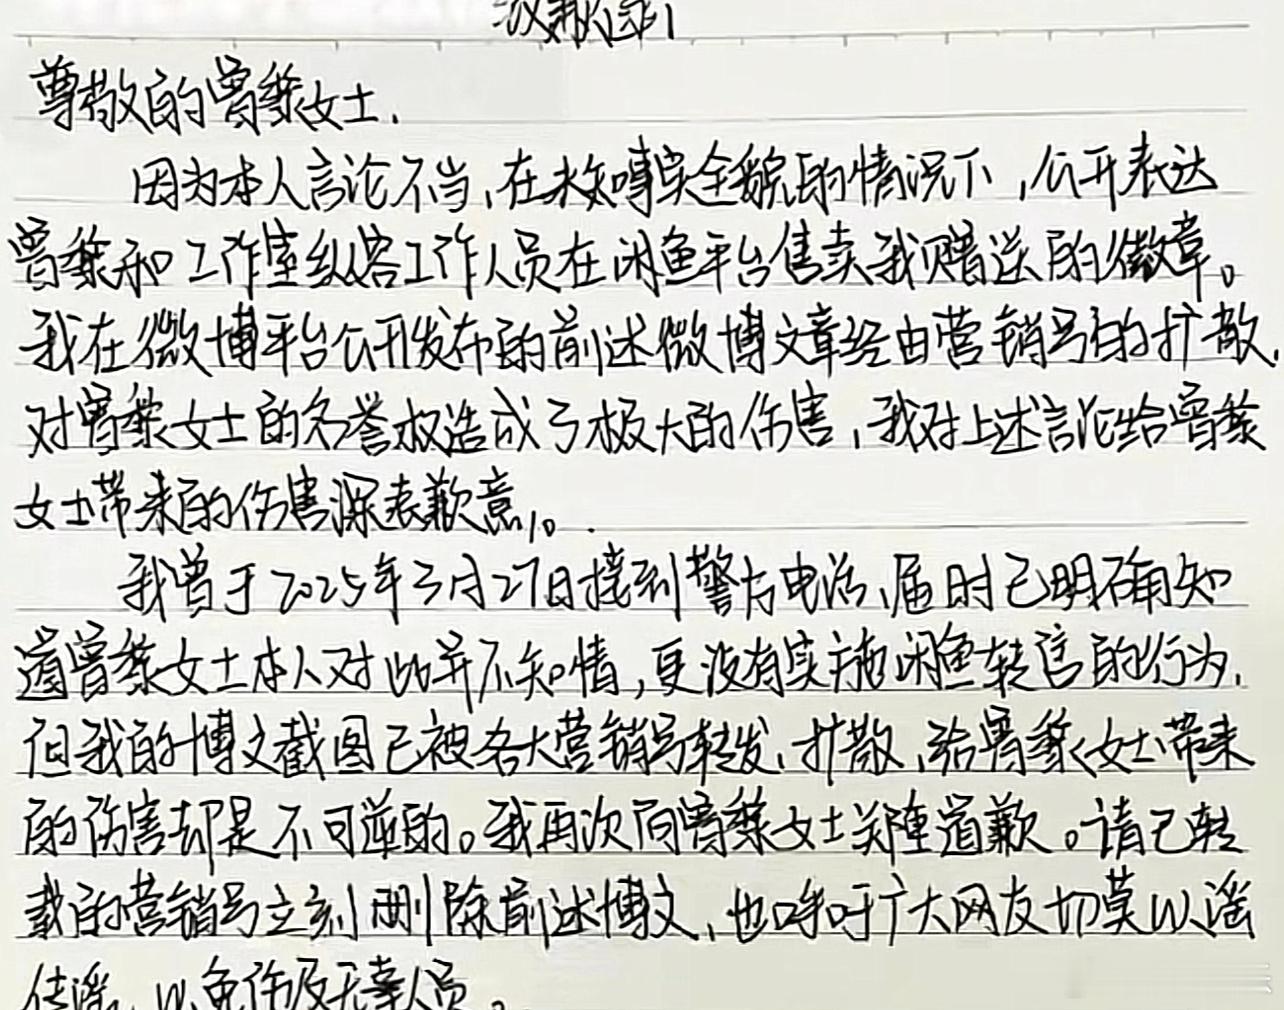 致歉信
尊敬的曾黎女士，
因为本人言论不当，在未知事实全貌的情况下，公开表达
曾黎和工作室纵容工作人员在闲鱼平台售卖我赠送的徽章。
我在微博平台公开发布的前述微博文章经由营销号的扩散，
对曾黎女士的名誉权造成了极大的伤害，我对上述言论给曾黎
女士带来的伤害深表歉意。
我曾于2025年3月27日接到警方电话，届时已明确知
道曾黎女士本人对此并不知情，更没有实施闲鱼转售的行为，
但我的博文截图已被各大营销号转发、扩散，给曾黎女士带来
的伤害却是不可逆的。我再次向曾黎女士郑重道歉。请已转
载的营销号立刻删除前述博文，也呼吁广大网友切莫以谣
传谣，以免伤及无辜人员。